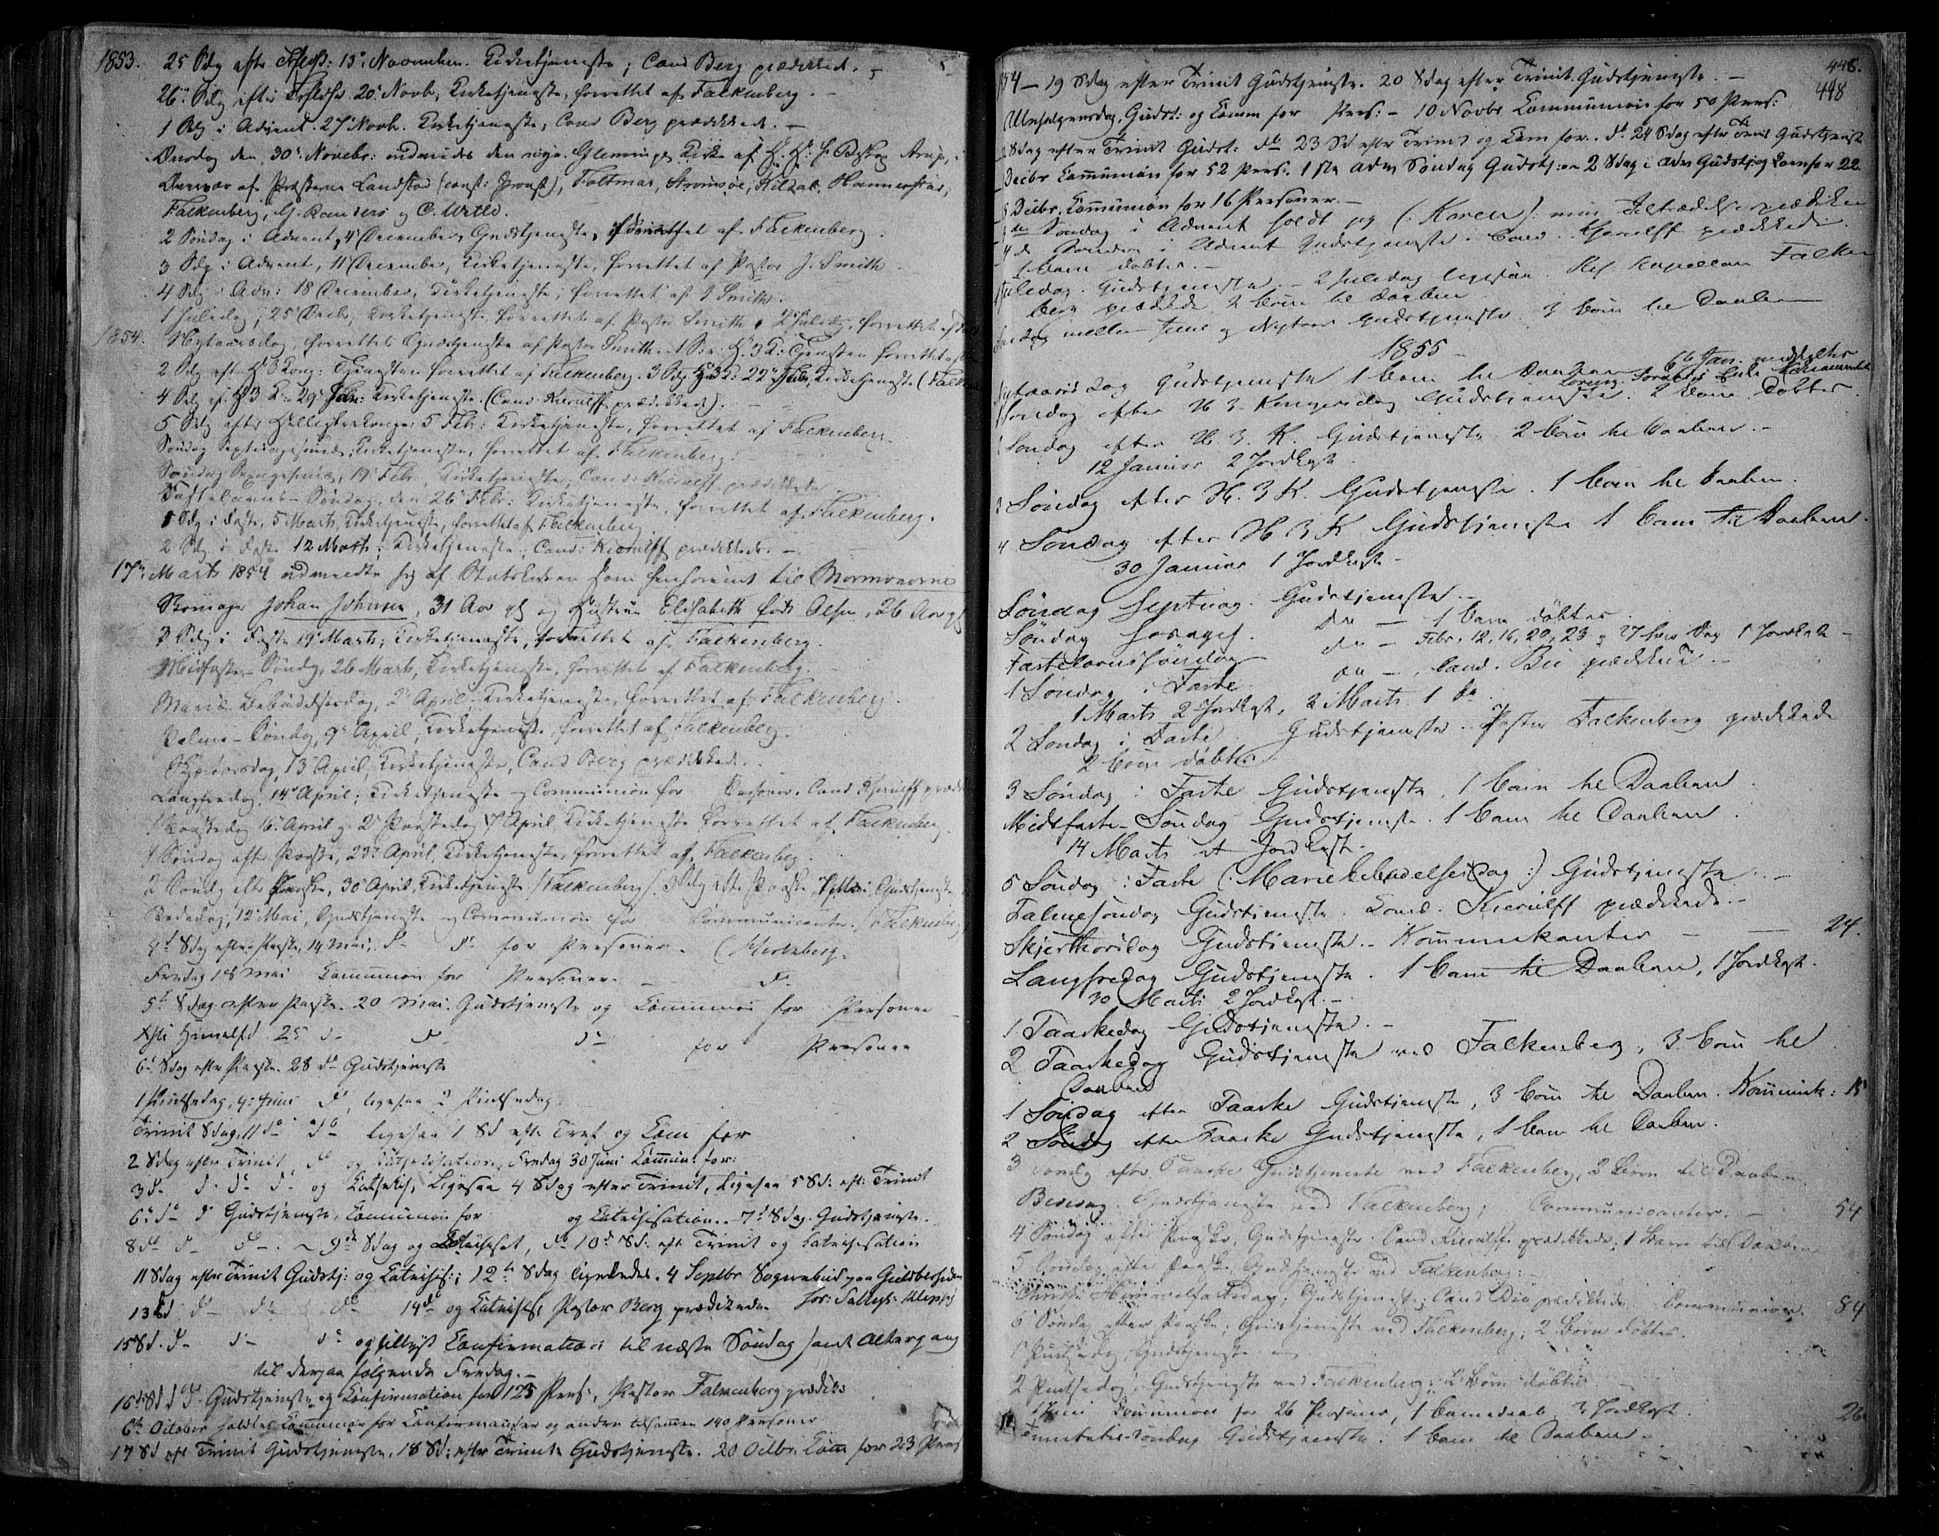 1853. 25 Sdg efter 13de November. Kirketjeneste; Cand Berg prædikede. -
26de Sdg efter 20de Novb, Kirketjeneste, forrettet af Falkenberg. -
1 Sdg i Advent. 27 Novb. Kirketjeneste, Cand Berg prædikede. -
Onsdag den 30te Novebr: indviedes den nye Glemminge Kirke af Biskop Arup,
Overvær af Præsterne Landstad (const: Provst), Foltmar, Strømsøe,
Falkenberg, og C. Wille.
2 Søndag i Advent, 4 December, Gudstjeneste, forrettet af Falkenberg.
3 Sdg i Advent, 11 December, Kirketjeneste, forrettet af Pastor J. Smith
4 Sdg i Adv: 18 December, Kirketjeneste, forrettet af J Smith.
1 Juledag, 25 Decbr, Kirketjeneste forrettet af Pastor Smith, 2 Juledag, forrettet af
1854. Nytaarsdag, forrettet Gudstjeneste af Pastor Smith. 1 Sdg: H. 3 K: Tjenesten forrettet
2 Sdg eft H 3 Kong: Tjenesten forrettet af Falkenberg. 3 Sdg H 3 K: 22 Kirketjeneste (Falken
4 Sdg ef. H 3 K. 29 Jan: Kirketjeneste. (Cand: Kierulff prædikede). -
5 Sdg efter Helligtrekonger 5 Feb: Kirketjeneste, forrettet af Falkenberg.
Søndag Septuagesima, Kirketjeneste, forrettet af Falkenberg.
Søndag Sexagesima, 19 Febr, Kirketjeneste, Cand: Kierulff prædikede
Fastelavns-Søndag, den 26 Feb: Kirketjeneste, forrettet af Falkenberg.
1 Sdg i Faste, 5 Marts, Kirketjeneste, forrettet af Falkenberg
2 Sdg i Faste 12 Marts; Kirketjeneste; Cand: Kierulff prædikede. -
17de Marts 1854 udmeldte sig af Statskirken som henhørende til Mormonerne
Skomager Johan Johnsen, 31 Aar gl og Hustrue Elisabeth født Olsen, 26 Aar gl
3 Sdg i Faste 19 Marts, Kirketjeneste, forrettet af Falkenberg.
Midfaste-Søndg, 26 Marts, Kirketjeneste, forrettet af Falkenberg. -
Mariæ Bebudelsesdag, 2 April, Kirketjeneste, forrettet af Falkenberg.
Palme-Søndg, 9 April, Kirketjeneste, forrettet af Falkenberg.
Skjertorsdag, 13 April, Kirketjeneste, Cand Berg prædikede. -
Langfredag, 14 April; Kirketjeneste og Communion for Personer. Cand Kierulff
1 Paaskedag 16 April og 2 Paaskedag 17 April, Kirketjeneste forrettet af Falkenberg
1 Søndag efter Paaske, 23 April, Kirketjeneste, forrettet af Falkenberg.
2 Søndg efter Paaske, 30 April, Kirketjeneste (Falkenberg). 3 Sdg efter Paaske, 7 Mai, Gudstjeneste
Bededag, 12 Mai, Gudstjeneste og Communion for Communicanter. (Falkenberg)
4de Sdag efter Paaske, 14 Mai. do do for Personer.
Fredag 18 Mai Communion for Personer. do
5te Sdag efter Paaske. 20 Mai. Gudstjeneste og Communion for Personer
Xsti Himmelfd 25 d- d- do for Personer
6te Sdag efter Paaske 28 do Gudstjeneste
1 Pintsedag, 4 Juni do, ligesaa 2 Pintsedag.
Trinit Sdag, 11 do do ligesaa 1 Sd eft: Trit og Com for
2 Sdag efter Trinit, do og Catechisation, Fredag 30 Juni Commun: for:
3 d- d- do d- og Catechis, Ligesaa 4 Sdag efter Trinit, Ligesaa 5 Sd: eft: Trinit
6te do d Gudstjeneste, Communion for og Catechisation. - 7de Sdag. Gudstjeneste.
8de do d- do - 9de Sdag og Catechiset, do 10de Sd: eft Trinit og Catechisation
11 Sdag efter Trinit Gudstj: og Catechis:; 12te Sdag ligeledes. 4 Septbr Sognebud paa Guldbersiden
13 Sd d- do do 14de og Catechis: Pastor Berg prædikede
15 Sd. d- d- do og tillyst Confirmation til næste Søndag samt Altergang
til derpaa følgende Fredag. -
16de Sd do Gudstjeneste og Confirmation for 123 Pers:, Pastor Falkenberg prædik:
6te October holdtes Communion for Confirmander og andre tilsammen 140 Personer
17 Sd eft Trinit Gudstjeneste. 18 Sd: efter Trinit Gudstjeneste. 20 Octbr. Com for 23 Pers
448.
448
54 - 19 Sdag efter Trinit Gudstjeneste. 20 Sdag efter Trinit. Gudstjeneste. -
Allehelgensdag. Gudst: og Comm for Pers: - 10 Novbr Communion for 50 Pers:
Sdag efter Trinit Gudst: do 23 Sd efter Trinit og Com for. do 24 Sdag efter Trinit Gudstjenest
Decbr Communion for 52 Pers. 1ste Adv Søndag Gudstj: 2 Sdag i Adv Gudstj og Com for 22
Decbr, Communion for 16 Personer. -
Søndag i Advent holdt jeg (: Koren :) min Tiltrædelsesprædiken
4de Søndag i Advent Gudstjeneste. Cand. Kierulff prædikede.
1 Barn døbtes. -
Juledag. Gudstjeneste. - 2 Juledag ligesaa. Ref Kapellan Falken
berg prædikede 2 Børn til Daaben
Søndag mellem Juul og Nytaar Gudstjeneste. 3 Børn til Daaben
1855 -
Nytaarsdag Gudstjeneste 1 Barn til Daaben
16 Jan. meddeltes
Søndag efter H. 3. Kongersdag Gudstjeneste. 2 Børn Døbtes.
Søndag efter H. 3. K. Gudstjeneste. 2 Børn til Daaben. -
12 Januar 2 Jordkast.
3 Søndag efter H. 3 K. Gudstjeneste. 1 Barn til Daaben.
4 Søndag efter H 3 K Gudstjeneste 1 Barn til Daaben.
30 Januar 1 Jordkast -
Søndag Septuag. Gudstjeneste. -
Søndag Sexages. do - 1 Barn døbtes.
Fastelavnssøndag do - Febr. 12, 16, 20, 23 og 27 hver Dag 1 Jordkast -
1 Søndag i Faste do - , Cand. Bie prædikede. -
1 Marts 2 Jordkast, 2 Marts 1 do.
2 Søndag i Faste. Gudstjeneste. Pastor Falkenberg prædikede
2 Børn døbtes
3 Søndag i Faste Gudstjeneste, 1 Barn til Daaben
Midtfaste-Søndag Gudstjeneste. 1 Barn til Daaben.
14 Marts et Jordkast.
5 Søndag i Faste (: Mariæ Bebudelsesdag :) Gudstjeneste. -
Palmesøndag Gudstjeneste. Cand. Kierulff prædikede. -
Skjærthorsdag Gudstjeneste. - Kommunikanter - 24.
Langfredag Gudstjeneste. 1 Barn til Daaben, 1 Jordkast.
30 Marts 2 Jordkast. -
1 Paaskedag Gudstjeneste. -
2 Paaskedag Gudstjeneste ved Falkenberg, 3 Børn til
Daaben
1 Søndag efter Paaske Gudstjeneste, 3 Børn til Daaben. Kommunik: 15
2 Søndag efter Paaske Gudstjeneste, 1 Barn til Daaben.
3 Søndg efter Paaske Gudstjeneste ved Falkenberg, 2 Børn til Daaben
Bededag. Gudstjeneste ved Falkenberg; Communicanter. - 54
4 Søndag efter Paaske, Gudstjeneste. Cand Kierulff prædikede, 1 Barn til Daaben
5 Søndag efter Paaske, Gudstjeneste ved Falkenberg. -
Christi Himmelfartsdag, Gudstjeneste, Cand Bie prædikede. Communion. 84
6 Søndag efter Paaske, Gudstjeneste ved Falkenberg; 2 Børn døbtes.
1 Pintsedag Gudstjeneste -
2 Pintsedag, Gudstjeneste ved Falkenberg; 2 Børn døbtes
1 Juni Communion for 26 Personer, 1 Barnedaab 3 Jordkast. 26
Trinitatis-Søndag Gudstjeneste. 1 Barn til Daaben -